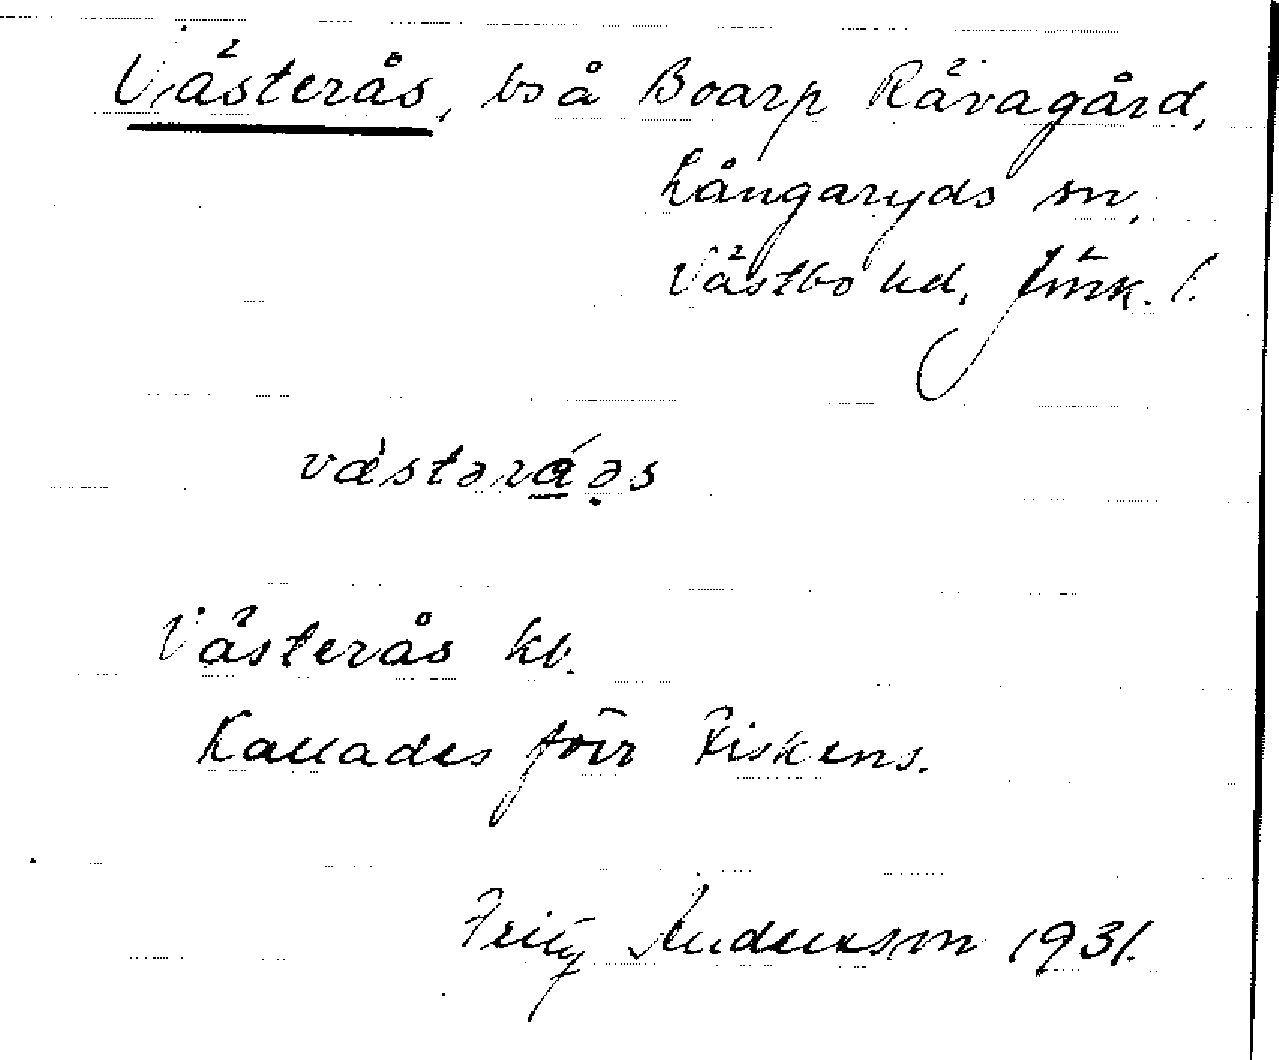 Västerås, bs å Boarp Rävagård,
Långaryds sn,
Västbo hd, Jönk. l.
vàstəráə̣s
Västerås kb.
Kallades förr Fiskens.
Fritz Anderson 1931.